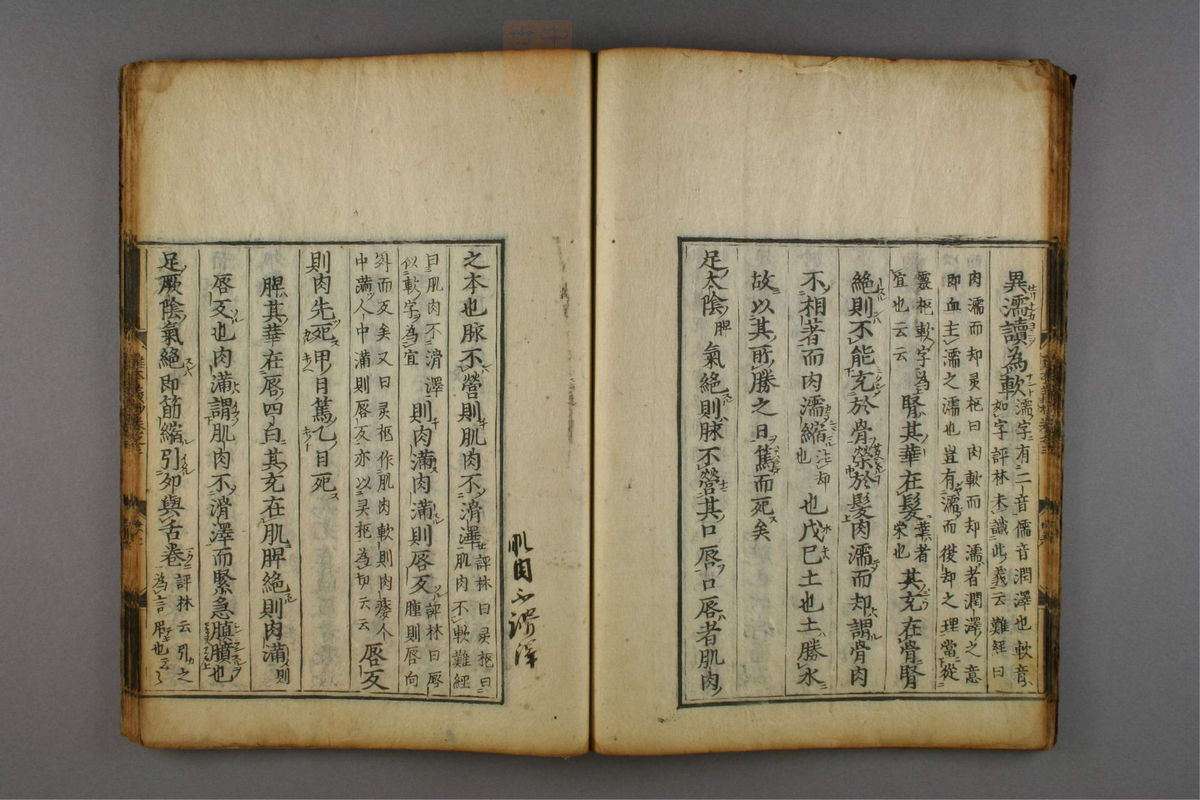 異濡讀為軟濡字有二音儒音潤澤也軟音
如字評林未識此義云難經曰
肉濡而却灵枢曰肉軟而却濡者潤澤之意
即血主濡之濡也豈有濡而後却之理當從
靈枢軟字為
宜也云云
腎其華在髮葉者
宋也
其充在骨腎
絶則不能充於骨榮於髮肉濡而却謂骨肉
不相著而肉濡縮
也戊巳土也土勝水
故以其所勝之日篤而死矣
足太陰脾氣絕則脉不營其口唇口唇者肌肉
之本也脉不營則肌肉不滑澤評林曰灵枢曰
肌肉不軟難經
曰肌肉不滑澤
似軟字為宜
則肉滿肉滿則唇反評林曰唇
腫則唇向
外而反矣又曰灵枢作肌肉軟則肉萎人
中滿人中滿則唇反亦以灵枢為切云云
唇反
則肉先死甲日篤乙日死
脾其華在唇四白其充在肌脾絕則肉滿則
唇反也肉滿謂肌肉不滑澤而緊急䐜也
足厥陰氣絕即筋縮引卵與舌卷評林云引之
為言吊也云云
肌肉不滑澤